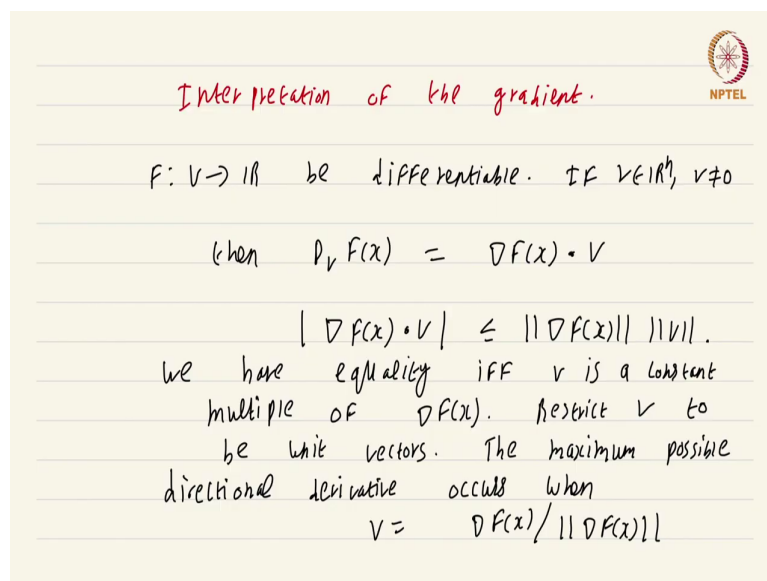 Interpretation of the gradient.
NPTEL
F: U → ℝ be differentiable. If v ∈ ℝⁿ, v ≠ 0
then D_v F(x) = ∇F(x) · v
| ∇F(x) · v | ≤ ||∇F(x)|| ||v||.
we have equality iff v is a constant
multiple of ∇F(x). Restrict v to
be unit vectors. The maximum possible
directional derivative occurs when
v = ∇F(x) / ||∇F(x)||